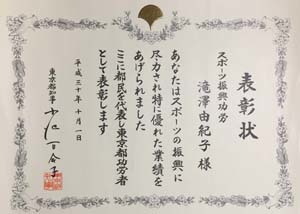 表彰状
スポーツ振興功労
滝澤由紀子様
あなたはスポーツの振興に
尽力され特に優れた業績を
あげられました
ここに都民を代表し東京都功労者
として表彰します
平成三十年十月一日
東京都知事 小池百合子